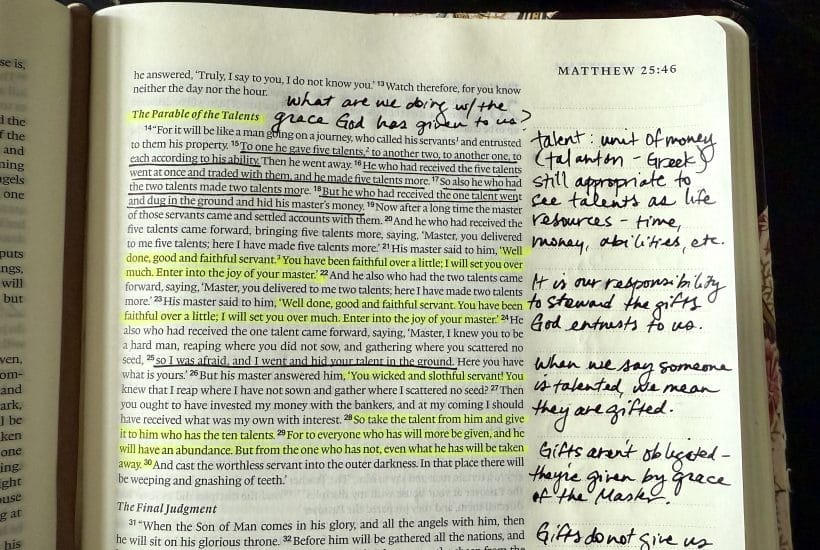 se is,
d the
f the
and
ning
ngels
one
puts
ngs,
will
but
ven,
om-
and
ark,
l be
ken
one
ing.
ght
ouse
g at
his
MATTHEW 25:46
he answered, ‘Truly, I say to you, I do not know you.’ 13 Watch therefore, for you know
neither the day nor the hour.
what are we doing w/ the
grace God has given to us?
The Parable of the Talents
14 “For it will be like a man going on a journey, who called his servants¹ and entrusted
to them his property. 15 To one he gave five talents,² to another two, to another one, to
each according to his ability. Then he went away. 16 He who had received the five talents
went at once and traded with them, and he made five talents more. 17 So also he who had
the two talents made two talents more. 18 But he who had received the one talent went
and dug in the ground and hid his master’s money. 19 Now after a long time the master
of those servants came and settled accounts with them. 20 And he who had received the
five talents came forward, bringing five talents more, saying, ‘Master, you delivered
to me five talents; here I have made five talents more.’ 21 His master said to him, ‘Well
done, good and faithful servant.³ You have been faithful over a little; I will set you over
much. Enter into the joy of your master.’ 22 And he also who had the two talents came
forward, saying, ‘Master, you delivered to me two talents; here I have made two talents
more.’ 23 His master said to him, ‘Well done, good and faithful servant. You have been
faithful over a little; I will set you over much. Enter into the joy of your master.’ 24 He
also who had received the one talent came forward, saying, ‘Master, I knew you to be
a hard man, reaping where you did not sow, and gathering where you scattered no
seed, 25 so I was afraid, and I went and hid your talent in the ground. Here you have
what is yours.’ 26 But his master answered him, ‘You wicked and slothful servant! You
knew that I reap where I have not sown and gather where I scattered no seed? 27 Then
you ought to have invested my money with the bankers, and at my coming I should
have received what was my own with interest. 28 So take the talent from him and give
it to him who has the ten talents. 29 For to everyone who has will more be given, and he
will have an abundance. But from the one who has not, even what he has will be taken
away. 30 And cast the worthless servant into the outer darkness. In that place there will
be weeping and gnashing of teeth.’
The Final Judgment
31 “When the Son of Man comes in his glory, and all the angels with him, then
he will sit on his glorious throne. 32 Before him will be gathered all the nations, and
talent: unit of money
(talanton - Greek)
still appropriate to
see talents as life
resources - time,
money, abilities, etc.
It is our responsibility
to steward the gifts
God entrusts to us.
When we say someone
is talented, we mean
they are gifted.
Gifts aren't obligated -
they're given by grace
of the Master.
Gifts do not give us